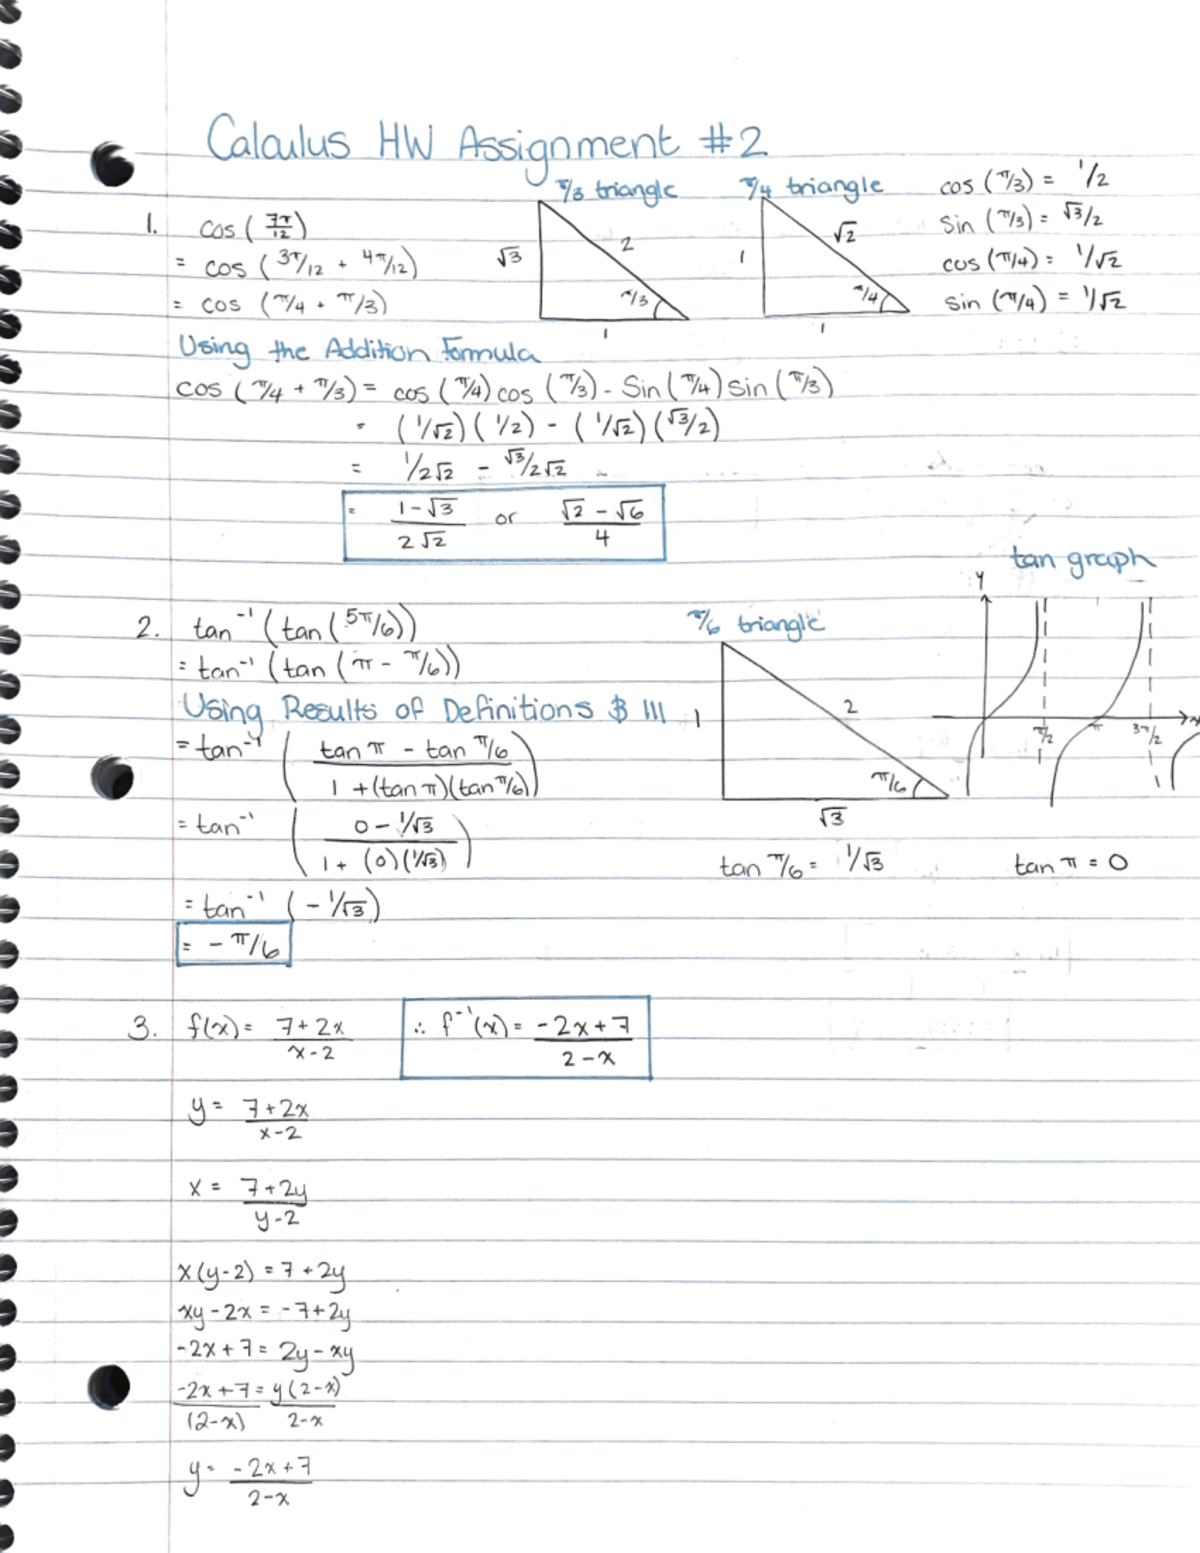 Calculus HW Assignment #2
π/3 triangle
√3
2
π/3
1
π/4 triangle
1
√2
π/4
1
cos (π/3) = 1/2
Sin (π/3) = √3/2
cos (π/4) = 1/√2
Sin (π/4) = 1/√2
1. cos (7π/12)
= cos (3π/12 + 4π/12)
= cos (π/4 + π/3)
Using the Addition Formula
cos (π/4 + π/3) = cos (π/4) cos (π/3) - Sin (π/4) sin (π/3)
= (1/√2) (1/2) - (1/√2) (√3/2)
= 1/2√2 - √3/2√2
= 1-√3 / 2√2 or √2 - √6 / 4
2. tan⁻¹ (tan (5π/6))
= tan⁻¹ (tan (π - π/6))
Using Results of Definitions $ III
= tan⁻¹ (tan π - tan π/6 / 1 + (tan π)(tan π/6))
= tan⁻¹ (0 - 1/√3 / 1 + (0)(1/√3))
= tan⁻¹ (- 1/√3)
= - π/6
π/6 triangle
1
2
π/6
√3
tan π/6 = 1/√3
tan graph
y
x
π/2
π
3π/2
tan π = 0
3. f(x) = 7+2x / x-2
∴ f⁻¹(x) = -2x+7 / 2-x
y = 7+2x / x-2
x = 7+2y / y-2
x(y-2) = 7+2y
xy-2x = -7+2y
-2x+7 = 2y-xy
-2x+7 = y(2-x)
(2-x) 2-x
y = -2x+7 / 2-x